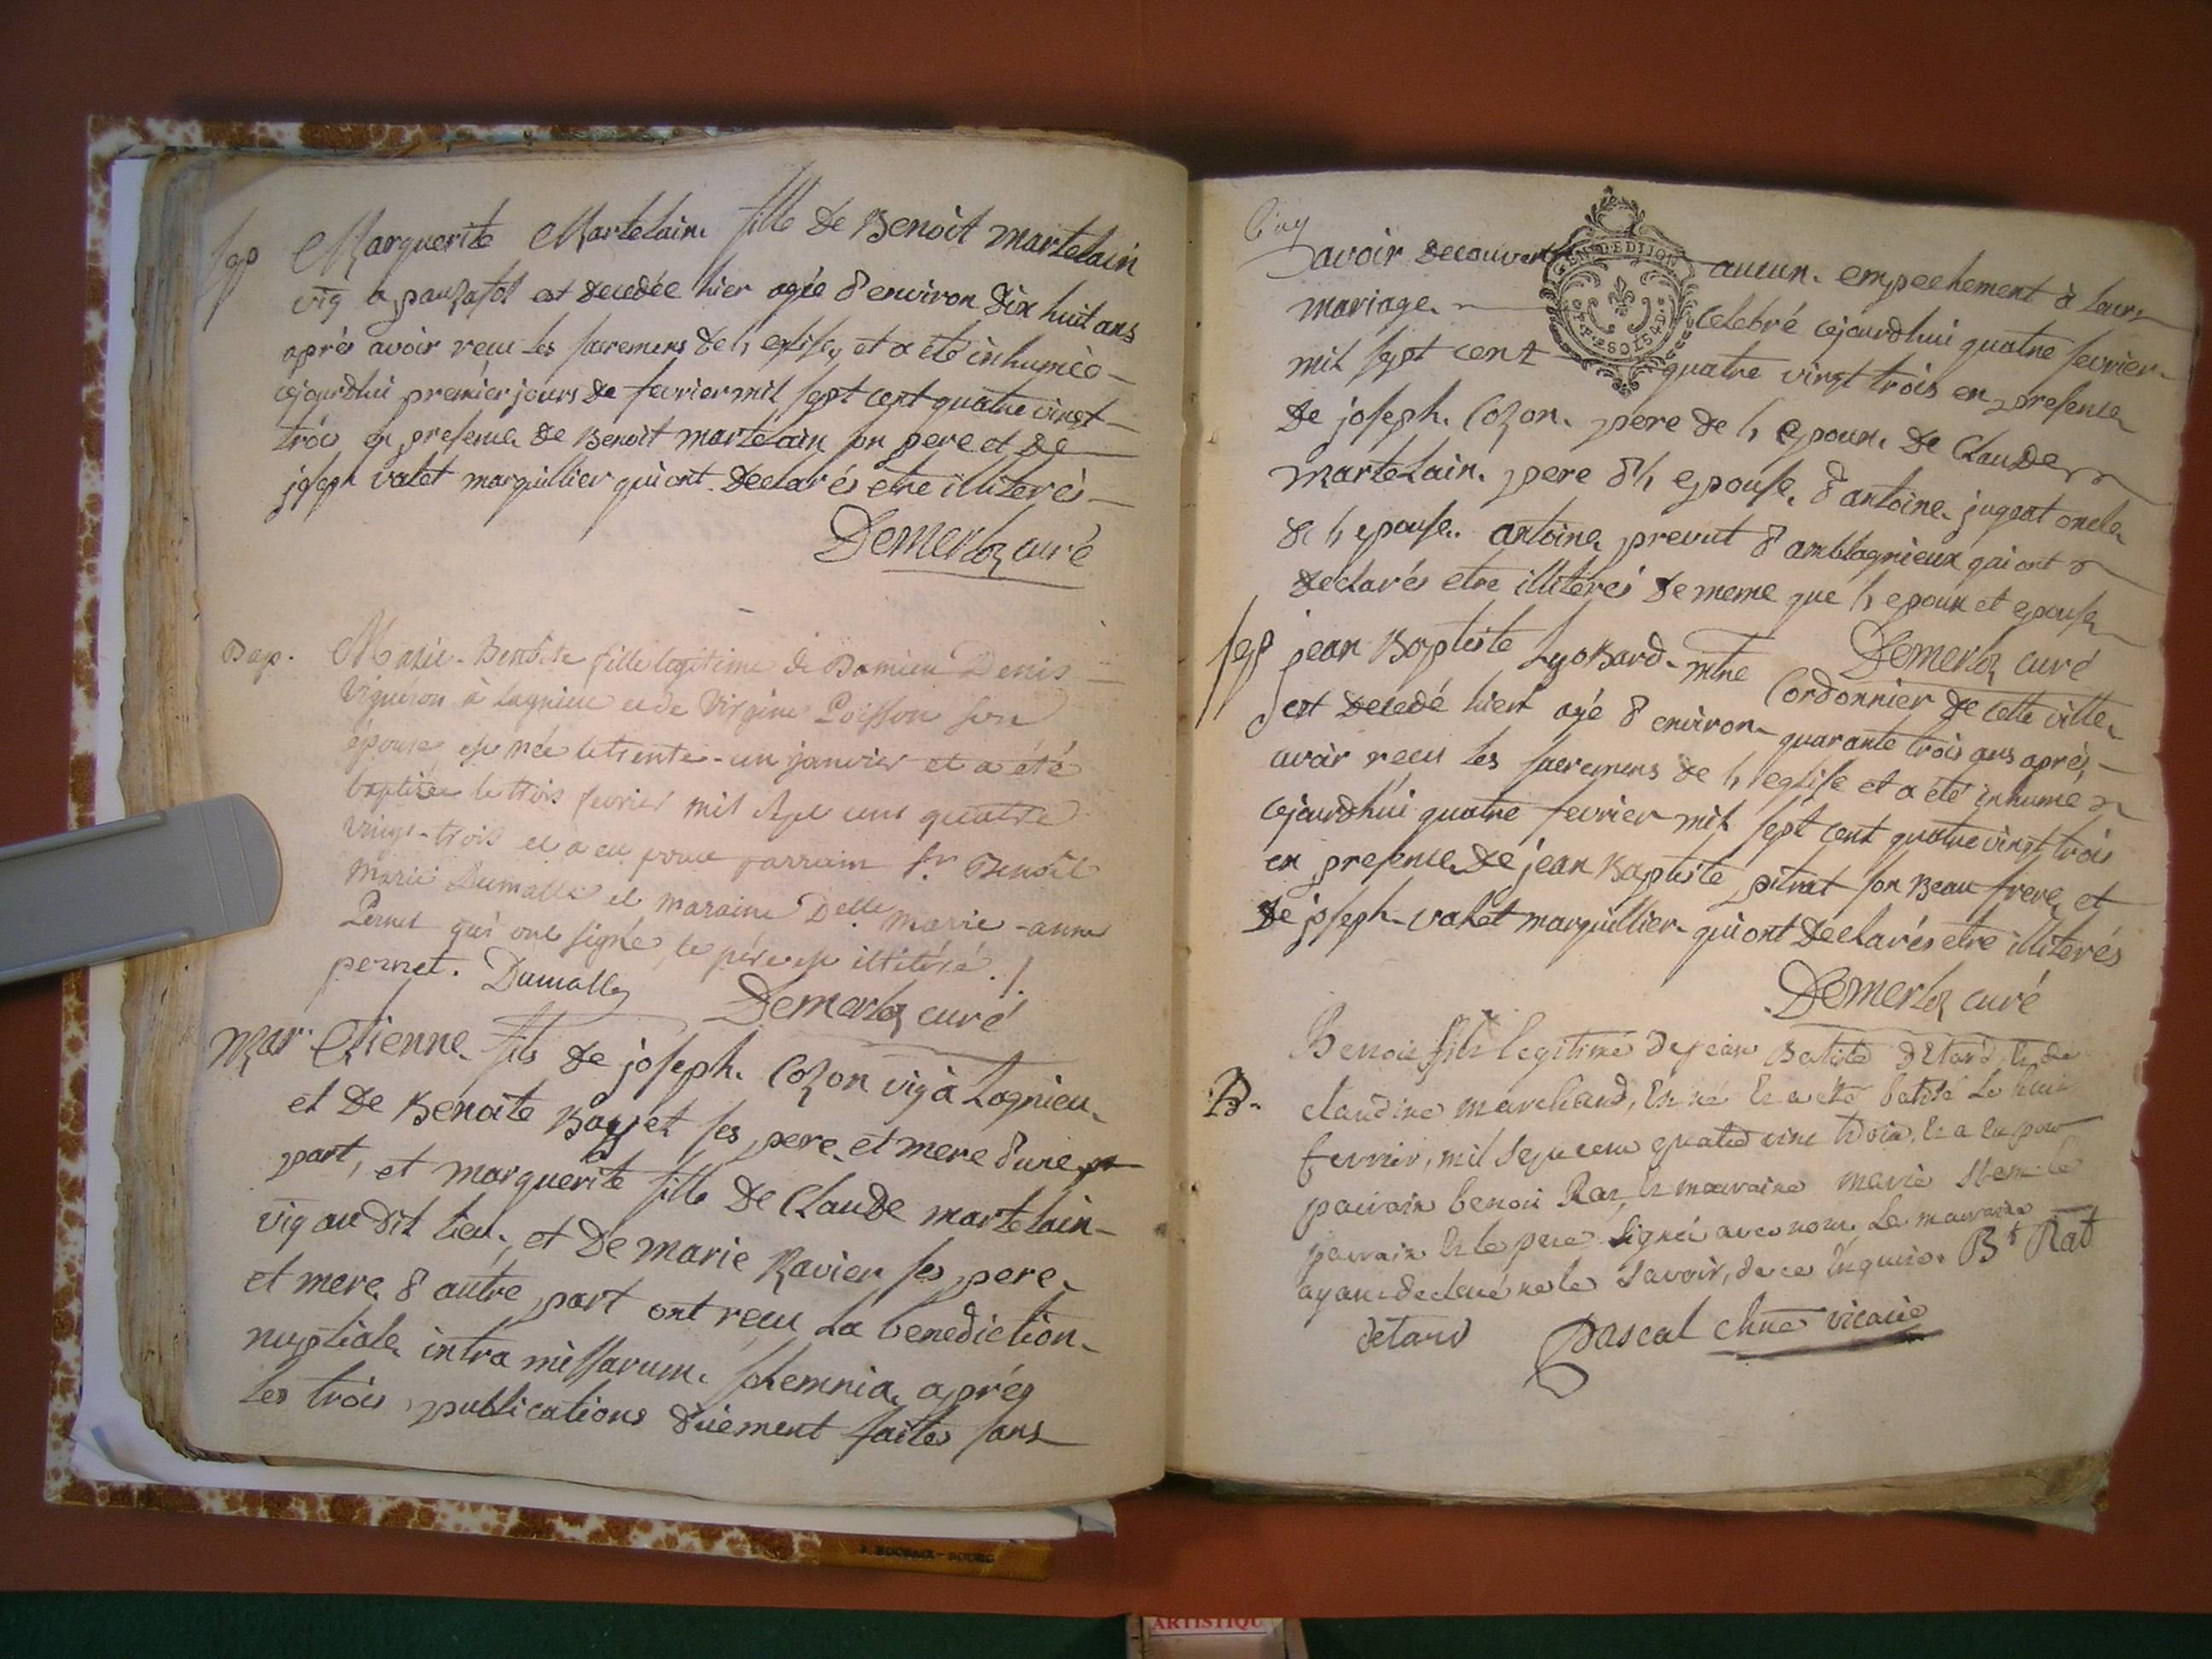 sep Marguerite Martelain fille de Benoit martelain
vig a est decedée hier agée d'environ dix huit ans
après avoir reçu les sacremens de l, eglise, et a été inhumée
cejourdhui premier jours de fevrier mil sept cent quatre vingt
trois en presence de Benoit martelain son pere et de
joseph valet marguillier qui ont declarés etre illiterés
Demerloz curé
Bap. Marie-Benoite fille legitime de Damien Denis
vigneron à lagnieu et de Virginie Poisson son
épouse, est née le trente-un janvier et a été
baptisée le trois fevrier mil sept cent quatre
vingt-trois et a eu pour parrain sr. Benoît
Marie Dumalle et maraine Delle. marie-anne
Pernet qui ont signés, le père est illitéré./.
pernet. Dumalle Demerloz curé
Mar. Etienne fils de joseph Cozon vig à Lagnieu
et de Benoite ses pere et mere d'une
part, et marguerite fille de Claude martelain
vig au dit lieu, et de marie Ravier ses pere
et mere d'autre part ont reçu la benediction
nuptiale intra missarum solemnia après
les trois publications düement faites sans
Cinq
avoir decouvert aucun empechement à leur
mariage celebré cejourdhui quatre fevrier
mil sept cent quatre vingt trois en presence
de joseph Cozon pere de l, epoux de Claude
martelain pere d l, epouse, d'antoine jugeat oncle
de l, epouse. antoine prevut d'amblagnieux qui ont
declarés etre illitérés de meme que l, epoux et epouse
Demerloz curé
sep jean Baptiste Lyobard mtre Cordonnier de cette ville
est decedé hier agé d'environ quarante trois ans après
avoir reçu les sacremens de l, eglise et a été inhumé
cejourdhui quatre fevrier mil sept cent quatre vingt trois
en presence de jean Baptiste pitrat son Beau frere, et
de joseph valet marguillier qui ont declarés etre illiterés
Demerloz curé
B. Benoit fils legitime de jean Batiste détard et de
claudine marchand, est né et a été batisé le huit
fevrier, mil sept cent quatre vint trois, et a eu pour
parrain benoit Rat, et marraine marie
parrain et le pere signés avec nous. La marraine
ayant declaré ne le savoir, de ce enquise. Bt Rat
detard Pascal chne vicaire
GEN. DE DIJON
DEUX SOLS 4 D.
J. ROCHAIX - BOURG
ARTISTIQU